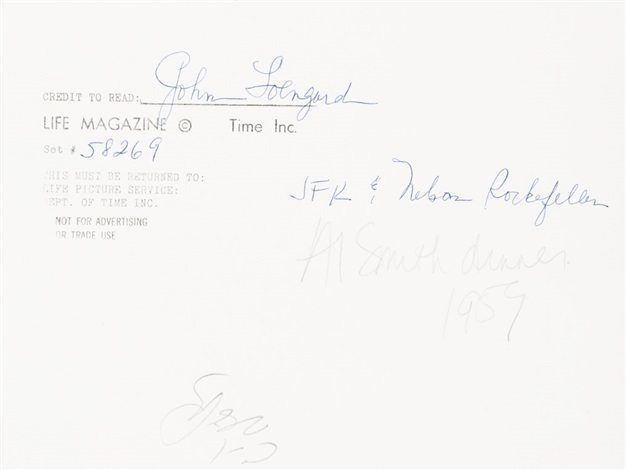 CREDIT TO READ: John Loengard
LIFE MAGAZINE © Time Inc.
Set # 58269
THIS MUST BE RETURNED TO:
LIFE PICTURE SERVICE:
DEPT. OF TIME INC.
NOT FOR ADVERTISING
OR TRADE USE
JFK & Nelson Rockefeller
Al Smith dinner
1959